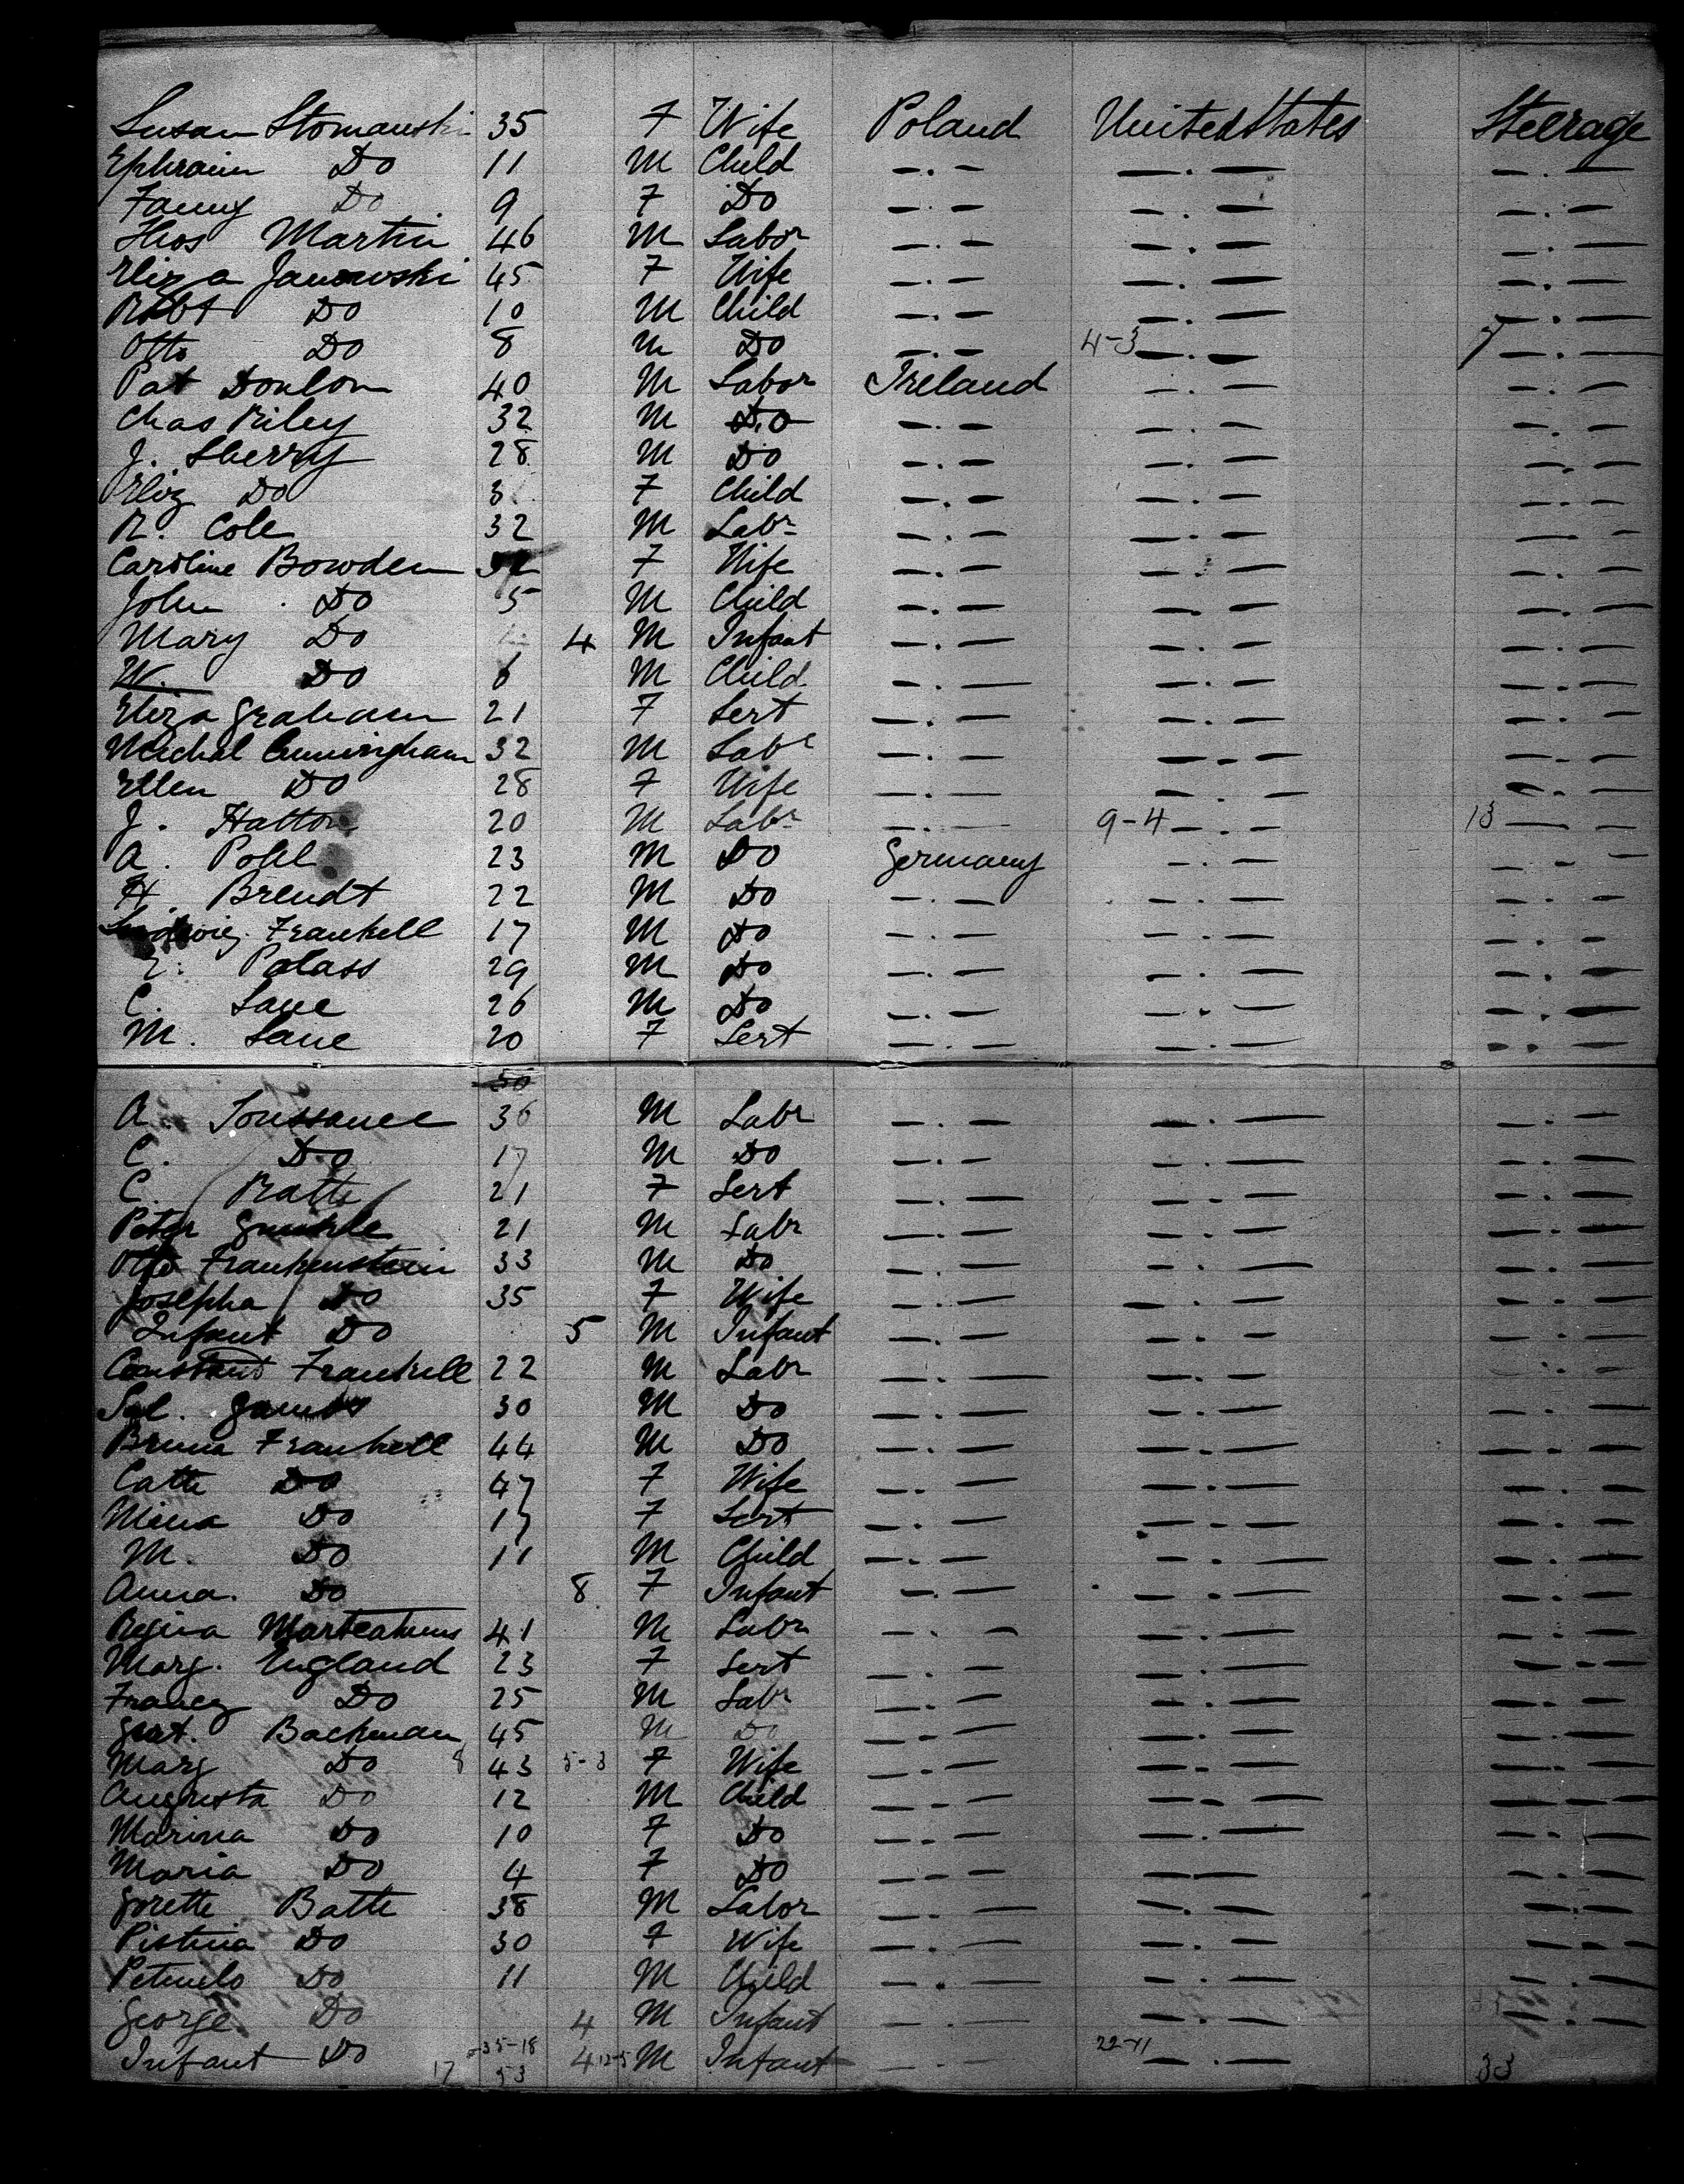 Susan Stomanski 35 F Wife Poland United States Steerage
Ephraim Do 11 M Child —.— —.— —.—
Fanny Do 9 F Do —.— —.— —.—
Thos Martin 46 M Labor —.— —.— —.—
Eliza Janowski 45 F Wife —.— —.— —.—
Robt Do 10 M Child —.— —.— —.—
Otto Do 8 M Do —.— 4-3 —.— 7 —.—
Pat Donlon 40 M Labor Ireland —.— —.—
Chas Riley 32 M Do —.— —.— —.—
J. Sherry 28 M Do —.— —.— —.—
Eliz Do 3 F Child —.— —.— —.—
R. Cole 32 M Labr —.— —.— —.—
Caroline Bowden F Wife —.— —.— —.—
John Do 5 M Child —.— —.— —.—
Mary Do 4 M Infant —.— —.— —.—
W. Do 6 M Child —.— —.— —.—
Eliza Graham 21 F Sert —.— —.— —.—
Michal Cunningham 32 M Labr —.— —.— —.—
Ellen Do 28 F Wife —.— —.— —.—
J. Hatton 20 M Labr —.— 9-4 —.— 13 —.—
A. Pohl 23 M Do Germany —.— —.—
H. Brendt 22 M Do —.— —.— —.—
Ludwig Frankell 17 M Do —.— —.— —.—
Palass 29 M Do —.— —.— —.—
C. Lane 26 M Do —.— —.— —.—
M. Lane 20 F Sert —.— —.— —.—
50
A. Toussanee 36 M Labr —.— —.— —.—
C. Do 17 M Do —.— —.— —.—
C. Ratte 21 F Sert —.— —.— —.—
Peter 21 M Labr —.— —.— —.—
Otto Frankenstein 33 M Do —.— —.— —.—
Josepha Do 35 F Wife —.— —.— —.—
Infant Do 5 M Infant —.— —.— —.—
Constant Frankell 22 M Labr —.— —.— —.—
Sal. 30 M Do —.— —.— —.—
Bruna Frankell 44 M Do —.— —.— —.—
Catte Do 47 F Wife —.— —.— —.—
Mina Do 17 F Sert —.— —.— —.—
M. Do 11 M Child —.— —.— —.—
Anna. Do 8 F Infant —.— —.— —.—
Regina 41 M Labr —.— —.— —.—
Marg. England 23 F Sert —.— —.— —.—
Francz Do 25 M Labr —.— —.— —.—
Gert. Backman 45 M Do —.— —.— —.—
Marg Do 8 43 5-3 F Wife —.— —.— —.—
Augusta Do 12 M Child —.— —.— —.—
Marina Do 10 F Do —.— —.— —.—
Maria Do 4 F Do —.— —.— —.—
Gorette Batte 38 M Labor —.— —.— —.—
Pistina Do 30 F Wife —.— —.— —.—
Petruelo Do 11 M Child —.— —.— —.—
George Do 4 M Infant —.— —.— —.—
Infant Do 35-18 4 12-5 M Infant —.— 22-11 —.—
17 53 33